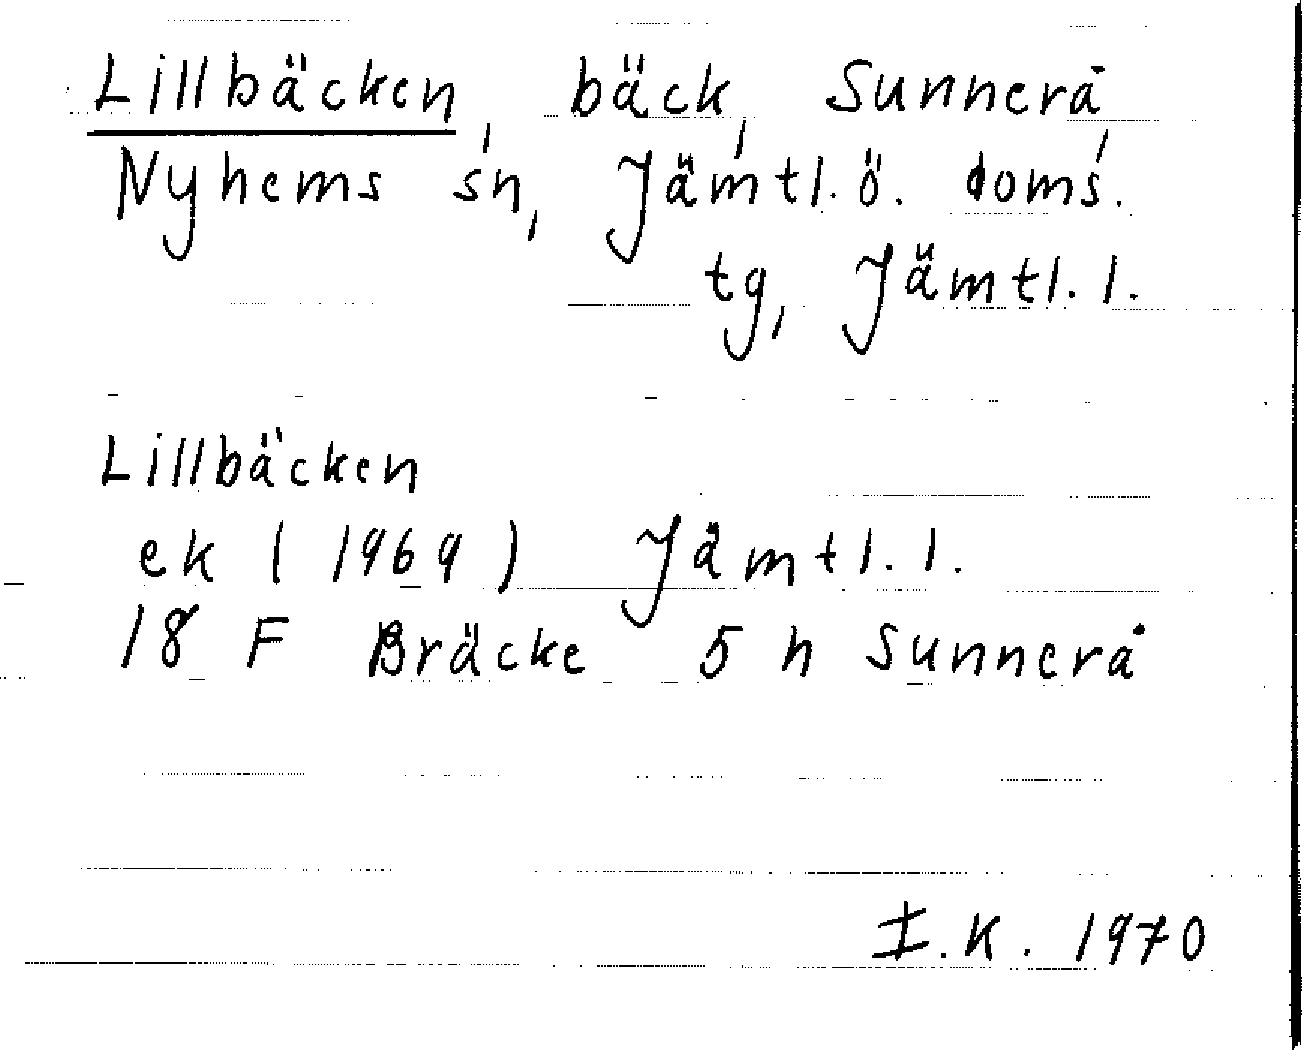 Lillbäcken, bäck, Sunnerå,
Nyhems sn, Jämtl. ö. doms.
tg, Jämtl. l.
Lillbäcken
ek (1969) Jämtl. l.
18 F Bräcke 5 h Sunnerå
I.K. 1970